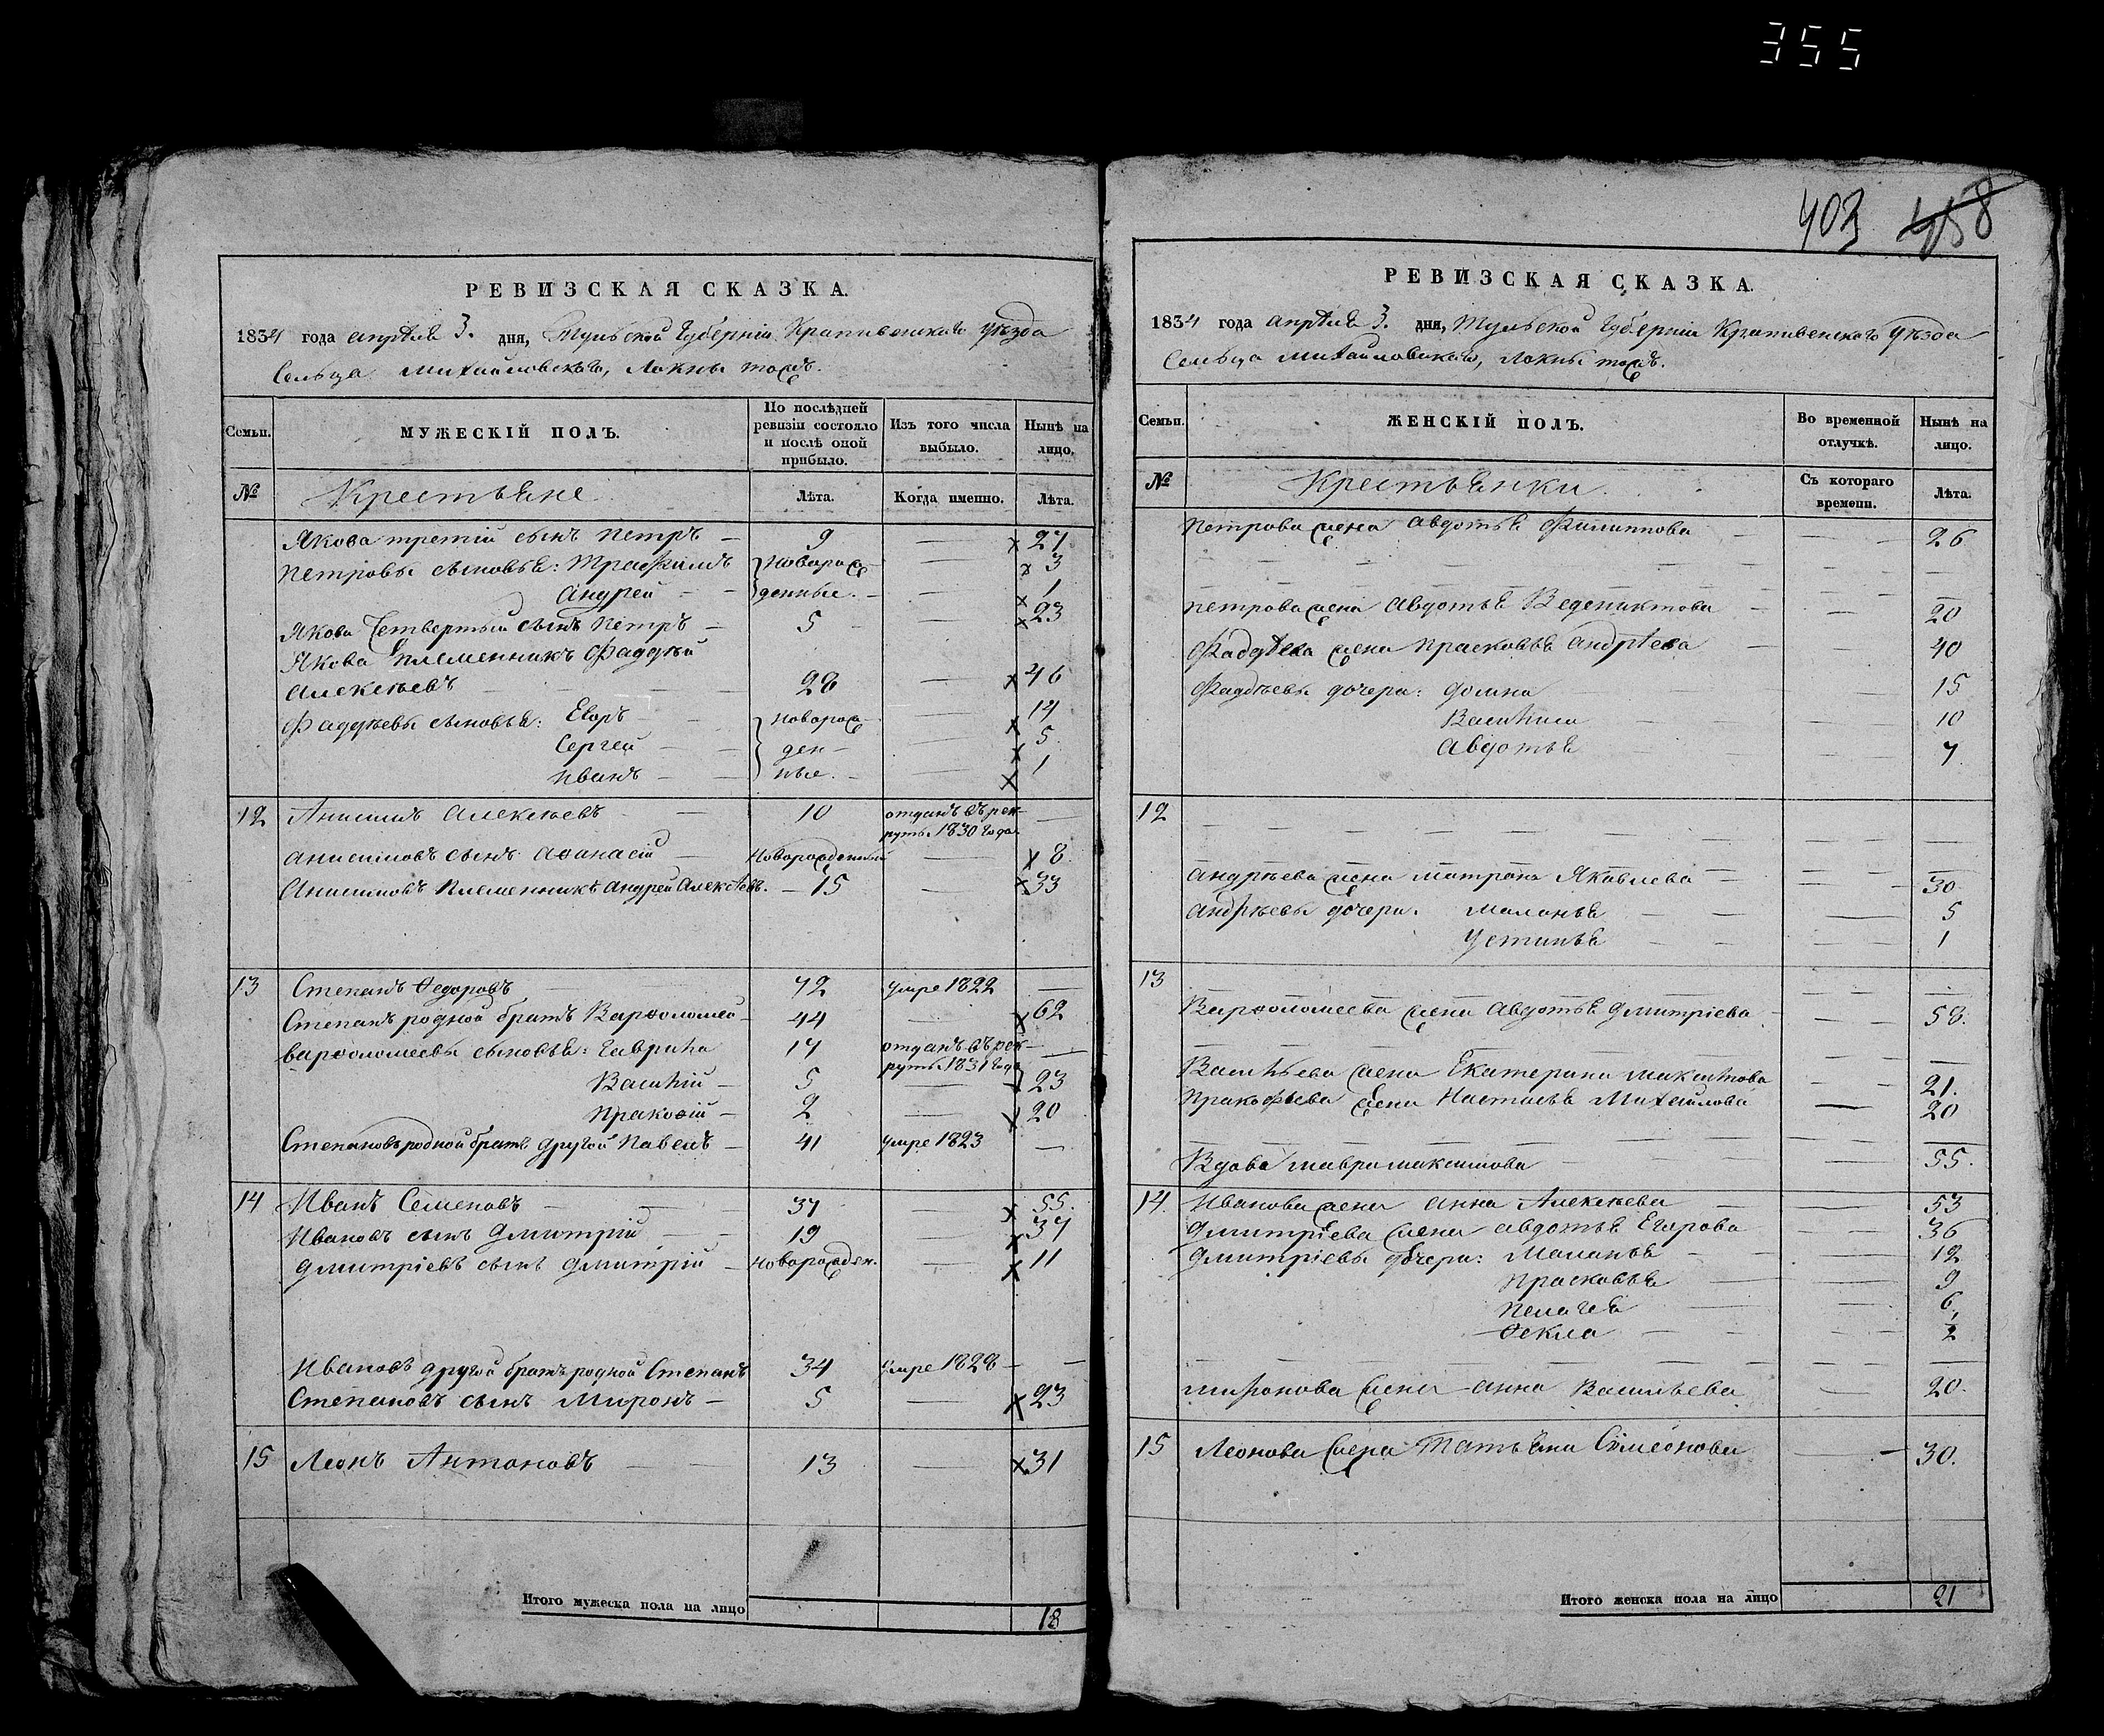 355
403 458
РЕВИЗСКАЯ СКАЗКА.
1834 года апрѣля 3. дня, Тульской Губерніи Крапивенскаго уѣзда
Сельца Михайловскаго, Локны тожъ.
Семьи. МУЖЕСКІЙ ПОЛЪ. По послѣдней ревизіи состояло и послѣ оной прибыло. Изъ того числа выбыло. Нынѣ на лицо.
№ Крестьяне Лѣта. Когда именно. Лѣта.
Якова третій сынъ Петръ — 9 — x 27
Петровы сыновья: Трафимъ } новорож — x 3
Андрей — } денные. — — x 1
Якова Четвертый сынъ Петръ — 5 — — x 23
Якова племенникъ Фаддѣй
Алексѣевъ — 28 — x 46
Фаддѣевы сыновья: Егоръ — } новорож — x 14
Сергей — } ден — — x 5
Иванъ — } ные. — — x 1
12 Анисимъ Алексѣевъ — 10 отданъ въ рек-
руты 1830 года —
Анисимовъ сынъ Аѳанасій — Новорожденный — x 8
Анисимовъ Племенникъ Андрей Алексѣевъ. — 15 — x 33
13 Степанъ Ѳедоровъ — 42 умре 1822 —
Степанъ родной братъ Варѳоломей — 44 — x 62
Варѳоломеевы сыновья: Гаврила 14 отданъ въ рек-
руты 1831 года —
Василій — 5 — x 23
Пракофій — 2 — x 20
Степановъ родной братъ другой Павелъ — 41 умре 1823 —
14 Иванъ Семеновъ — 37 — x 55.
Ивановъ сынъ Дмитрій — 19 — x 37
Дмитріевъ сынъ Дмитрій — новорожден. — x 11
Ивановъ другой братъ родной Степанъ 34 умре 1828 — —
Степановъ сынъ Миронъ — 5 — x 23
15 Леонъ Антоновъ — 13 — x 31
Итого мужеска пола на лицо 18
РЕВИЗСКАЯ СКАЗКА.
1834 года апрѣля 3. дня, Тульской Губерніи Крапивенскаго Уѣзда
Сельца Михайловскаго, Локны тожъ.
Семьи. ЖЕНСКІЙ ПОЛЪ. Во временной отлучкѣ. Нынѣ на лицо.
№ Крестьянки. Съ котораго времени. Лѣта.
Петрова жена Авдотья Филиппова — 26
Петрова жена Авдотья Веденихтова — 20
Фадѣева жена Прасковья Андрѣева — 40
Фаддѣевы дочери: Домна — 15
Василиса — 10
Авдотья — 7
12
Андрѣева жена Матрона Яковлева — 30
Андрѣевы дочери. Маланья — 5
Устинья — 1
13
Варѳоломеева жена Авдотья Дмитріева — 58.
Васильева жена Екатерина Максимова 21.
Пракофьева жена Настасья Михайлова — 20
Вдова Мавра Максимова — 55.
14. Иванова жена Анна Алексѣева — 53
Дмитріева жена Авдотья Егорова — 36
Дмитріевы дочери: Маланья — 12
Прасковья — 9
Пелагея — 6
Ѳекла — 2
Миронова жена Анна Васильева — 20.
15 Леонова жена Татьяна Симеонова — 30.
Итого женска пола на лицо 21